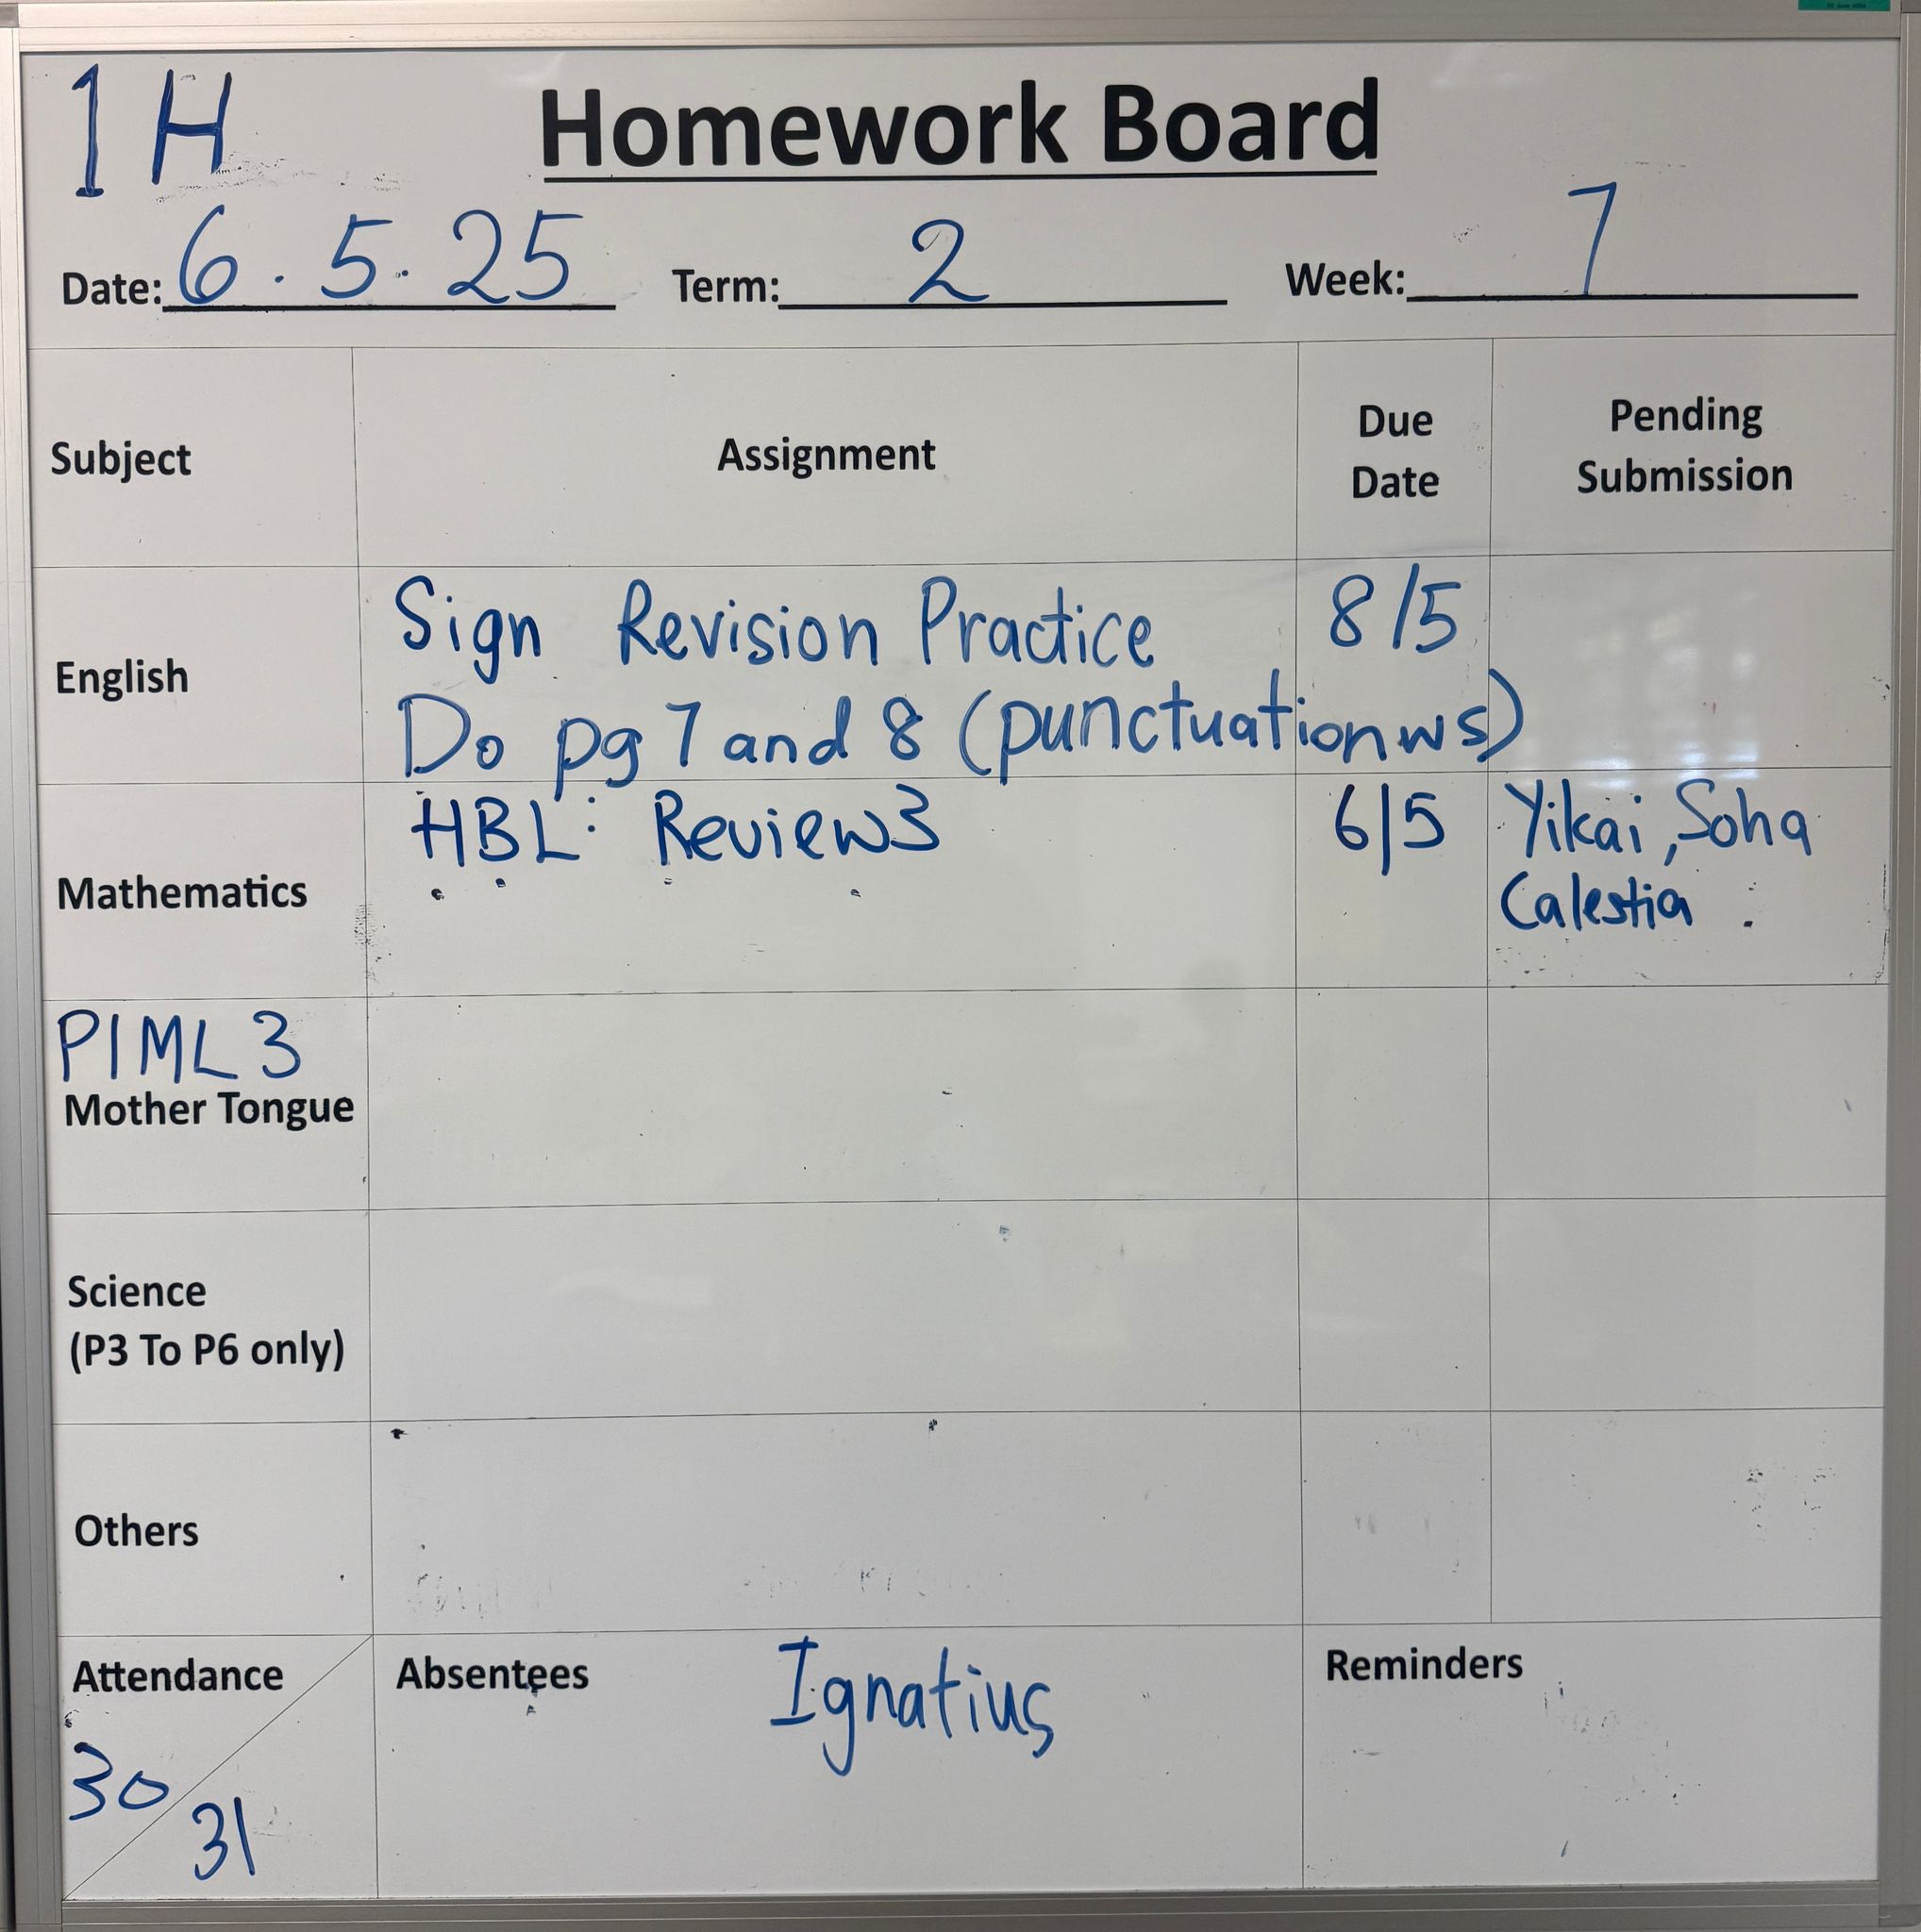 1H
Homework Board
Date: 6.5.25 Term: 2 Week: 7
Subject Assignment Due Date Pending Submission
English
Sign Revision Practice 8/5
Do pg 7 and 8 (punctuation ws)
Mathematics
HBL: Review 3 6/5 Yikai, Soha
Calestia
P1ML3
Mother Tongue
Science
(P3 To P6 only)
Others
Attendance
30
31
Absentees Ignatius
Reminders